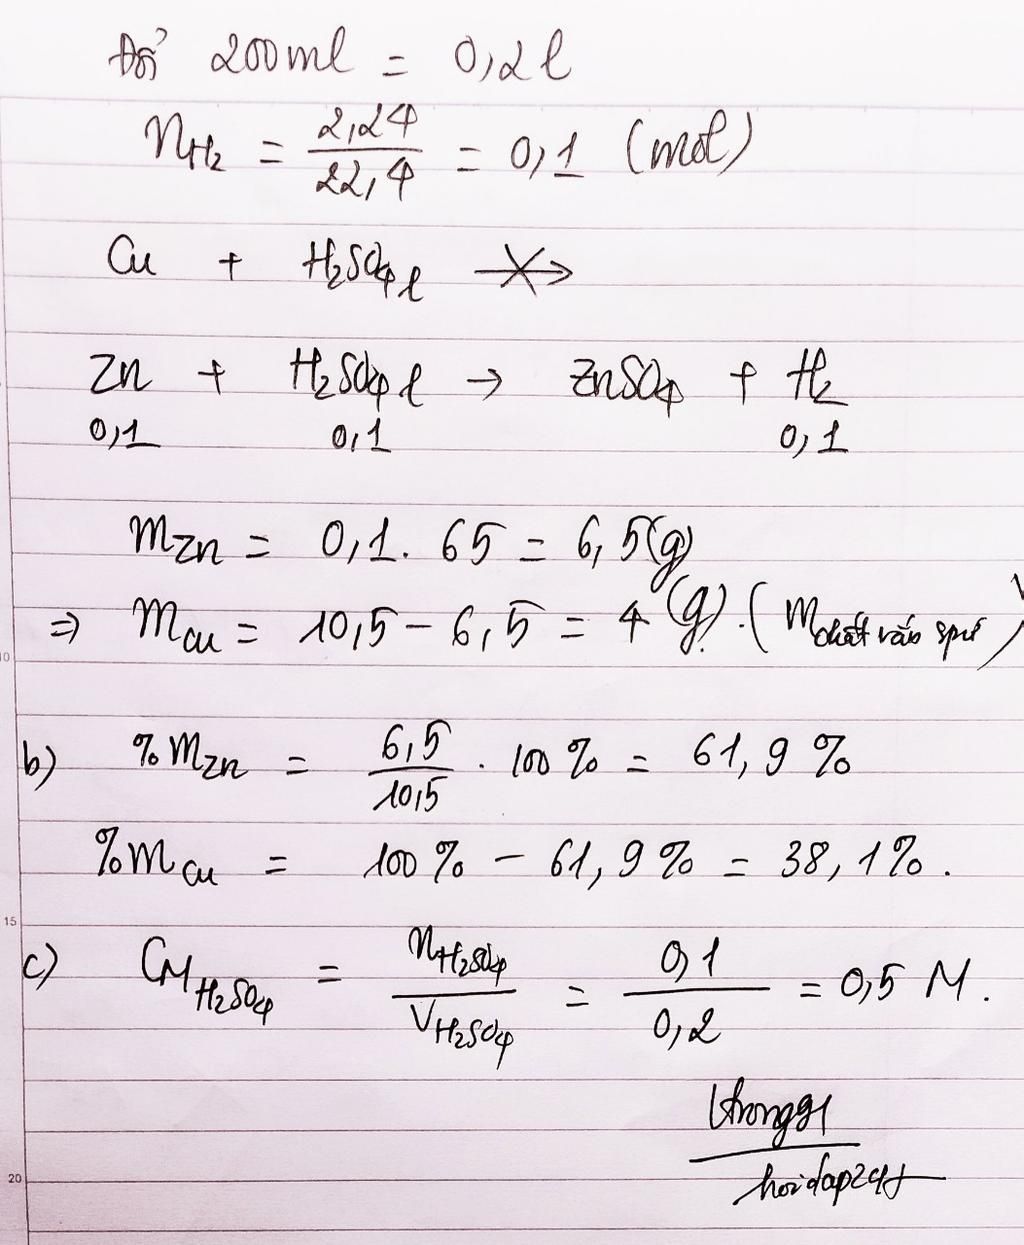 Đổi 200ml = 0,2l
nH2 = 2,24 / 22,4 = 0,1 (mol)
Cu + H2SO4 l ⇸
Zn + H2SO4 l → ZnSO4 + H2
0,1 0,1 0,1
mZn = 0,1. 65 = 6,5(g)
=> mCu = 10,5 - 6,5 = 4 (g). (m chất rắn spư)
b) %mZn = 6,5 / 10,5 . 100% = 61,9 %
%mCu = 100% - 61,9% = 38,1%.
c) CM H2SO4 = nH2SO4 / VH2SO4 = 0,1 / 0,2 = 0,5 M.
hoidap247
10
15
20